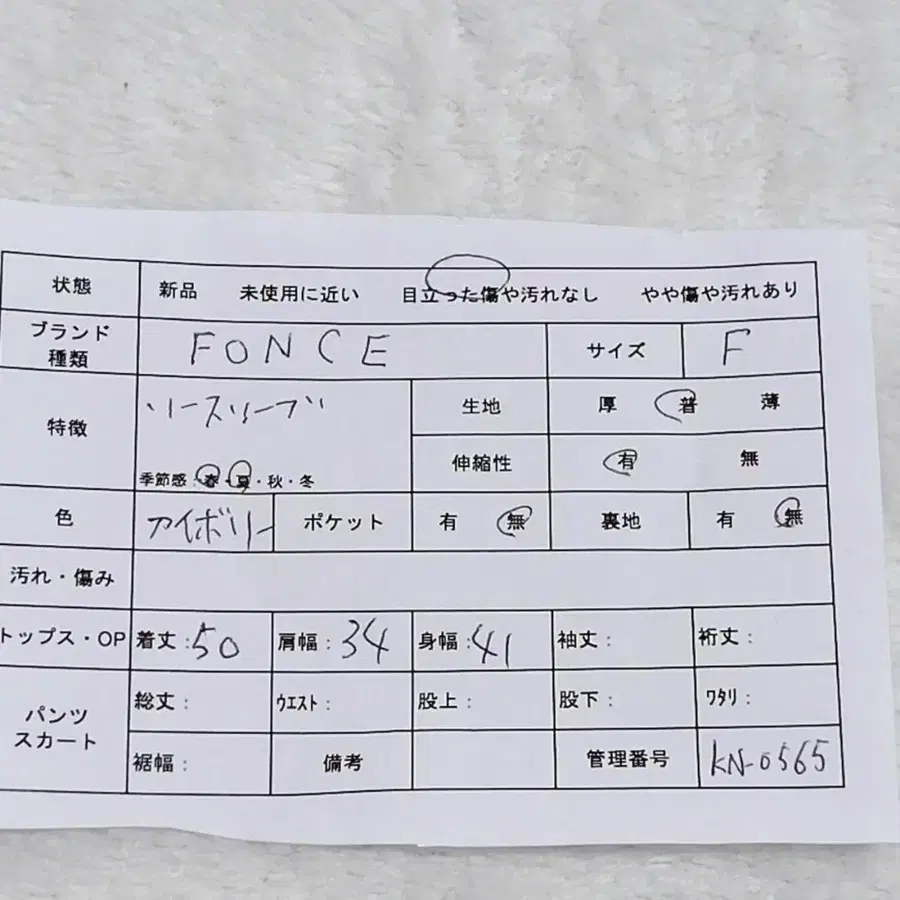 状態 新品 未使用に近い 目立った傷や汚れなし やや傷や汚れあり
ブランド種類 FONCE サイズ F
特徴 ノースリーブ 生地 厚 普 薄
伸縮性 有 無
季節感：春・夏・秋・冬
色 アイボリー ポケット 有 無 裏地 有 無
汚れ・傷み
トップス・OP 着丈：50 肩幅：34 身幅：41 袖丈： 裄丈：
パンツ スカート 総丈： ウエスト： 股上： 股下： ワタリ：
裾幅： 備考 管理番号 KN-0565